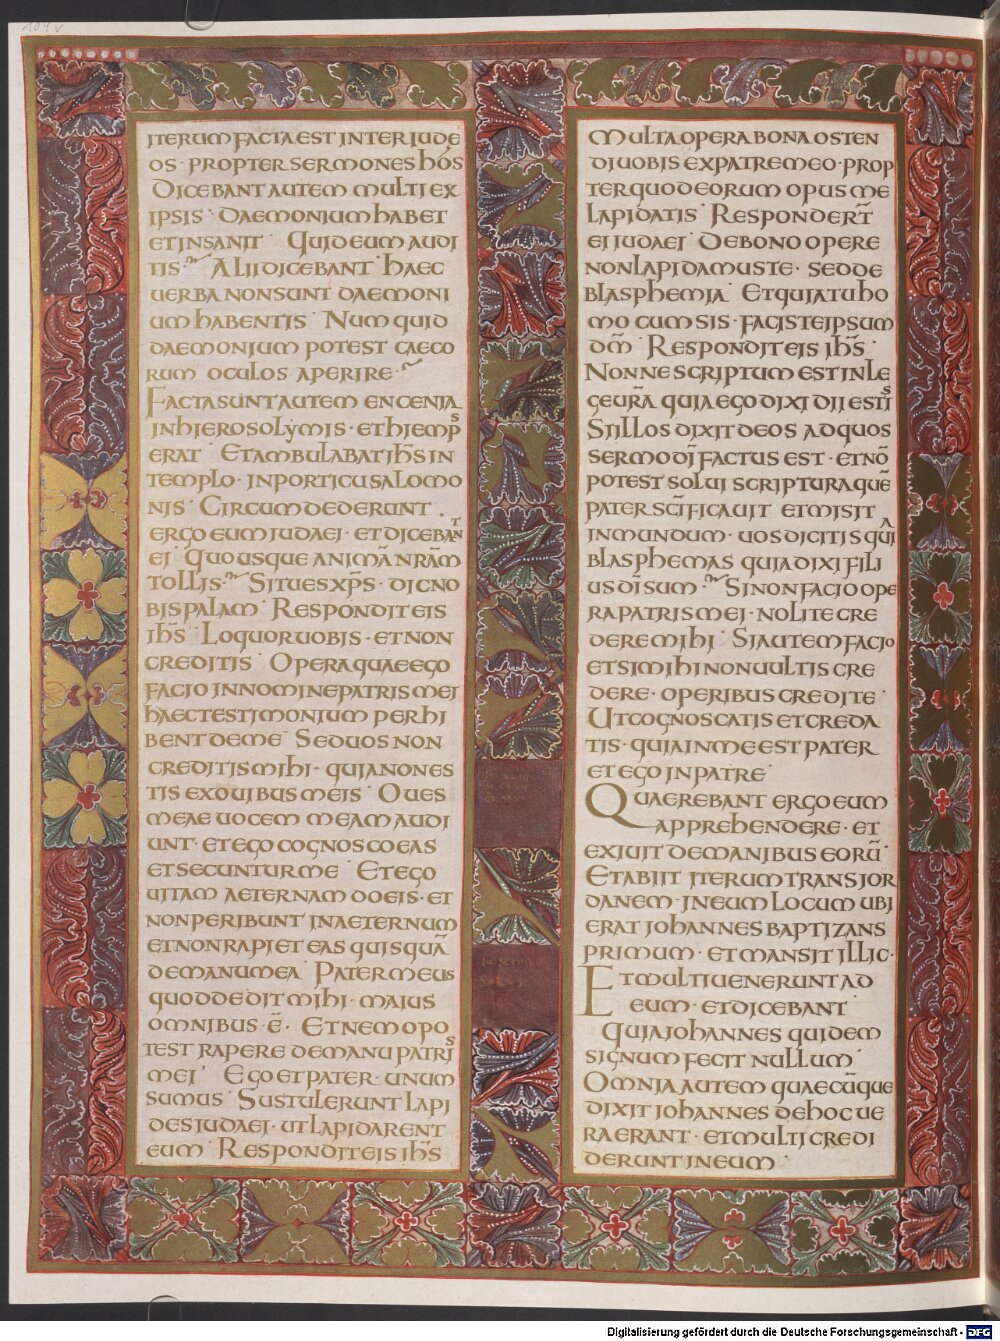 ITERUM FACTA EST INTER IUDE
OS · PROPTER SERMONES hOS
DICEBANT AUTEM MULTI EX
IPSIS · DAEMONIUM hABET
ET INSANIT · QUID EUM AUDI
TIS · ALII DICEBANT hAEC
UERBA NON SUNT DAEMONI
UM hABENTIS · NUMQUID
DAEMONIUM POTEST CAECO
RUM OCULOS APERIRE ·
FACTA SUNT AUTEM ENCENIA
IN hIEROSOLYMIS · ET hIEMPS
ERAT · ET AMBULABAT Ih̄S IN
TEMPLO · IN PORTICU SALOMO
NIS · CIRCUMDEDERUNT ·
ERGO EUM IUDAEI · ET DICEBANT
EI · QUOUSQUE ANIMĀ NRĀM
TOLLIS · SI TU ES XP̄S · DIC NO
BIS PALAM · RESPONDIT EIS
Ih̄S · LOQUOR UOBIS · ET NON
CREDITIS · OPERA QUAE EGO
FACIO IN NOMINE PATRIS MEI
hAEC TESTIMONIUM PERhI
BENT DE ME · SED UOS NON
CREDITIS MIhI · QUIA NON ES
TIS EX OUIBUS MEIS · OUES
MEAE UOCEM MEAM AUDI
UNT · ET EGO COGNOSCO EAS
ET SECUNTUR ME · ET EGO
UITAM AETERNAM DO EIS · ET
NON PERIBUNT IN AETERNUM
ET NON RAPIET EAS QUISQUĀ
DE MANU MEA · PATER MEUS
QUOD DEDIT MIhI · MAIUS
OMNIBUS · Ē · ET NEMO PO
TEST RAPERE DE MANU PATRIS
MEI · EGO ET PATER · UNUM
SUMUS · SUSTULERUNT LAPI
DES IUDAEI · UT LAPIDARENT
EUM · RESPONDIT EIS Ih̄S
MULTA OPERA BONA OSTEN
DI UOBIS EX PATRE MEO · PROP
TER QUOD EORUM OPUS ME
LAPIDATIS · RESPONDERT̄
EI IUDAEI · DE BONO OPERE
NON LAPIDAMUS TE · SED DE
BLASPhEMIA · ET QUIA TU hO
MO CUM SIS · FACIS TE IPSUM
DM̄ · RESPONDIT EIS Ih̄S ·
NONNE SCRIPTUM EST IN LE
GE UR̄A QUIA EGO DIXI DII ESTIS
SI ILLOS DIXIT DEOS AD QUOS
SERMO DĪ FACTUS EST · ET NŌ
POTEST SOLUI SCRIPTURA QUĒ
PATER SC̄IFICAUIT ET MISIT
IN MUNDUM · UOS DICITIS QUIA
BLASPhEMAS QUIA DIXI FILI
US DĪ SUM · SI NON FACIO OPE
RA PATRIS MEI · NOLITE CRE
DERE MIhI · SI AUTEM FACIO
ET SI MIhI NON UULTIS CRE
DERE · OPERIBUS CREDITE ·
UT COGNOSCATIS ET CREDA
TIS · QUIA IN ME EST PATER
ET EGO IN PATRE ·
QUAEREBANT ERGO EUM
APPREhENDERE · ET
EXIUIT DE MANIBUS EORŪ ·
ET ABIIT ITERUM TRANS IOR
DANEM · IN EUM LOCUM UBI
ERAT IOhANNES BAPTIZANS
PRIMUM · ET MANSIT ILLIC ·
ET MULTI UENERUNT AD
EUM · ET DICEBANT
QUIA IOhANNES QUIDEM
SIGNUM FECIT NULLUM ·
OMNIA AUTEM QUAECŪQUE
DIXIT IOhANNES DE hOC UE
RA ERANT · ET MULTI CREDI
DERUNT IN EUM ·
Digitalisierung gefördert durch die Deutsche Forschungsgemeinschaft - DFG